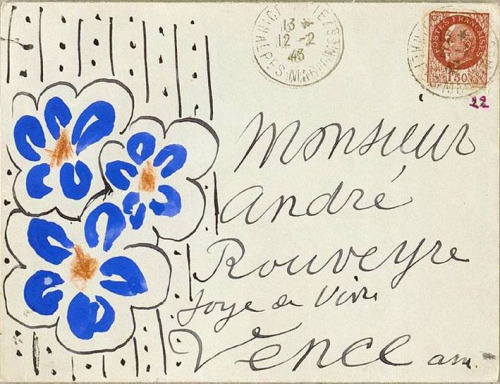 13 *
12 - 2
43
ALPES MARITIMES
POSTES FRANÇAISES
1F50
22
Monsieur
André
Rouveyre
Joye de Vivre
Vence am.